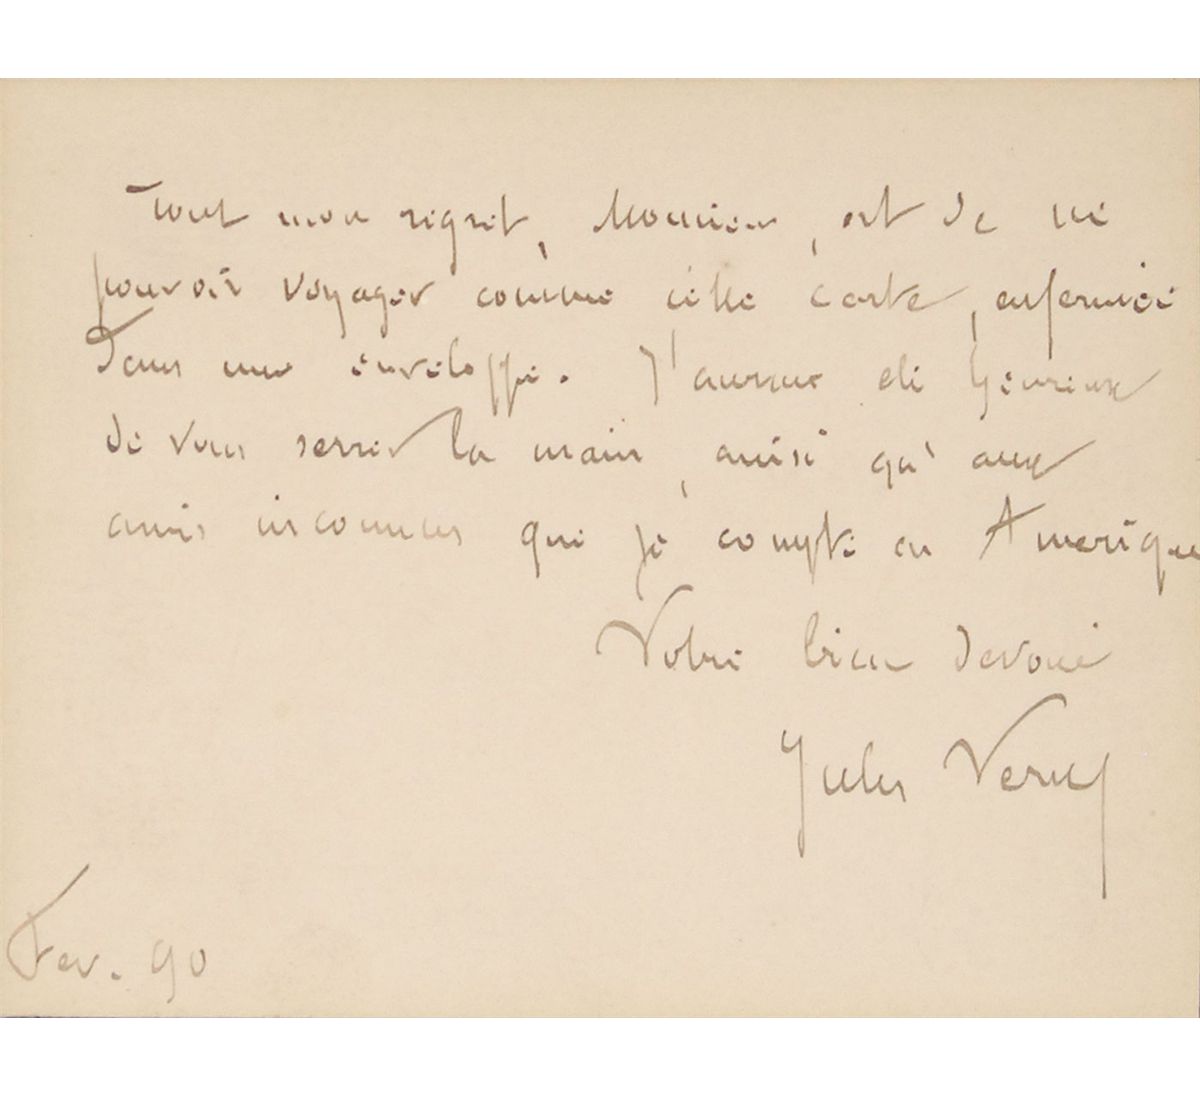 Tout mon regret, Monsieur, est de ne
pouvoir voyager comme cette carte, enfermée
dans une enveloppe. J'aurais été heureux
de vous serrer la main, ainsi qu'aux
amis inconnus que je compte en Amérique
Votre bien dévoué
Jules Verne
Fev. 90